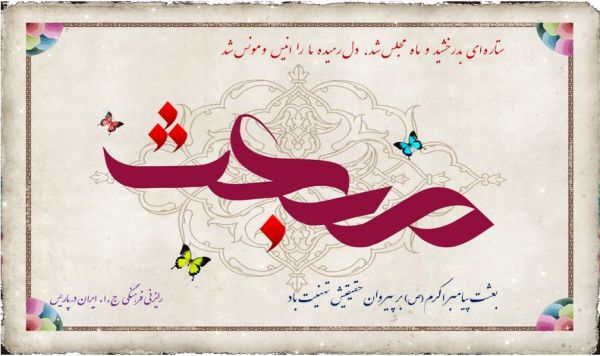 ستاره‌ای بدرخشید و ماه مجلس شد، دل رمیده ما را انیس و مونس شد
مبعث
بعثت پیامبر اکرم (ص) بر پیروان حقیقیش تهنیت باد
رایزنی فرهنگی ج.ا. ایران در پاریس